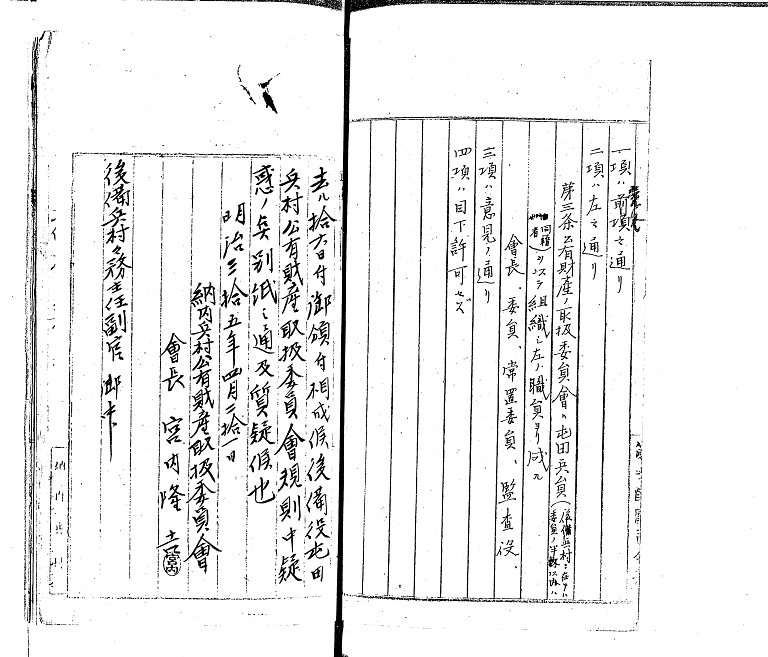 一項ハ前項之通り
二項ハ左之通り
第三条公有財産ノ取扱委員會ハ屯田兵員(後備兵村ニ在テハ
委員ノ半数以内ハ
同籍
者)ヲ以テ組織シ左ノ職員ヨリ成ル
會長、委員、常置委員、監査役、
三項ハ意見ノ通り
四項ハ目下許可セズ
去ル拾六日付御領付相成候後備役屯田
兵村公有財産取扱委員會規則中疑
惑ノ点別紙之通及質疑候也
明治三拾五年四月二拾一日
納内兵村公有財産取扱委員會
會長 宮内隆吉
後備兵村々務主任副官 御中
納内兵村